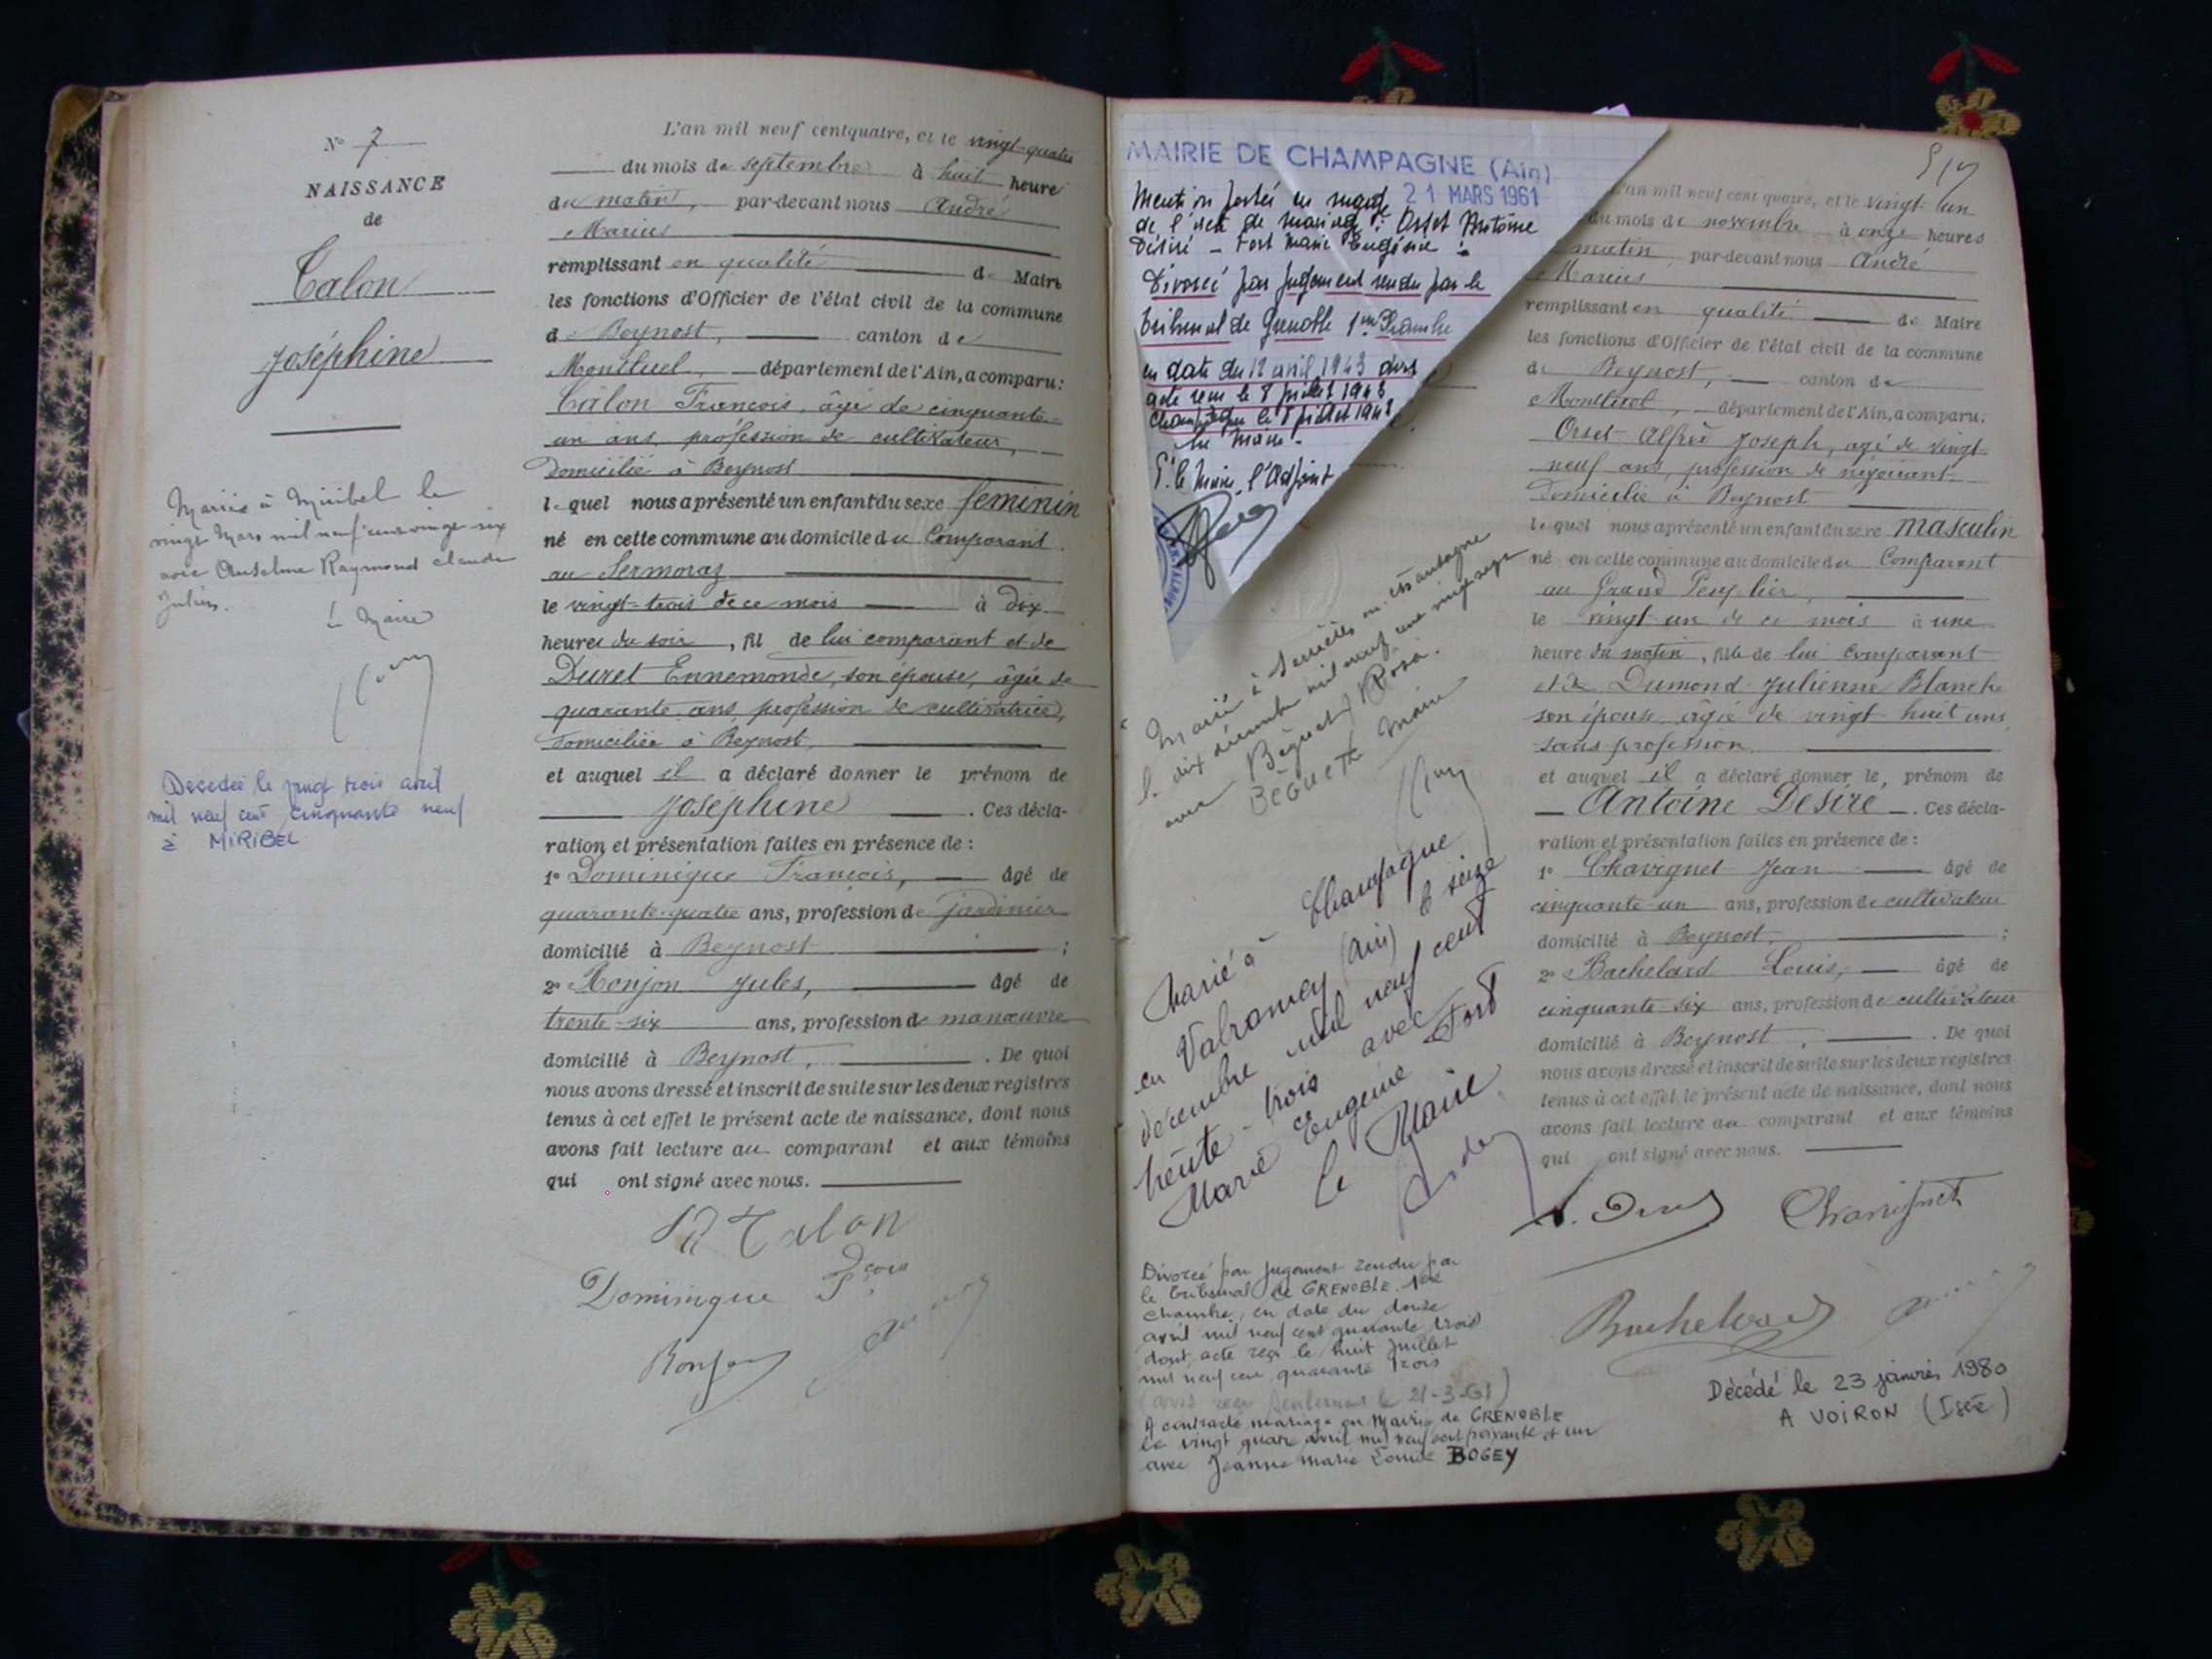 N° 7
NAISSANCE
de
Talon
Joséphine
Mariée à Miribel le
vingt Mars mil neuf cent vingt-six
avec Anselme Raymond Claude
Julien.
Le Maire
Décédée le vingt trois avril
mil neuf cent cinquante neuf
à MIRIBEL
L'an mil neuf cent quatre, et le vingt-quatre
du mois de septembre à huit heure
du matin, par-devant nous André
Marius
remplissant en qualité de Maire
les fonctions d'Officier de l'état civil de la commune
de Beynost, canton de
Montluel, département de l'Ain, a comparu:
Talon François, âgé de cinquante-
un ans, profession de cultivateur,
domicilié à Beynost
lequel nous a présenté un enfant du sexe féminin
né en cette commune au domicile du Comparant
au Sermoraz
le vingt-trois de ce mois à dix
heures du soir, fil de lui comparant et de
Duret Ennemonde, son épouse, âgée de
quarante ans, profession de cultivatrice,
domiciliée à Beynost,
et auquel il a déclaré donner le prénom de
Joséphine. Ces décla-
ration et présentation faites en présence de:
1° Dominique François, âgé de
quarante-quatre ans, profession de jardinier
domicilié à Beynost;
2° Ronjon Jules, âgé de
trente-six ans, profession de manœuvre
domicilié à Beynost. De quoi
nous avons dressé et inscrit de suite sur les deux registres
tenus à cet effet le présent acte de naissance, dont nous
avons fait lecture au comparant et aux témoins
qui ont signé avec nous.
Talon
Dominique Fçois
Ronjon
MAIRIE DE CHAMPAGNE (Ain)
21 MARS 1961
Mention portée en marge
de l'acte de mariage: Orset Antoine
Désiré - Fort Marie Eugénie:
Divorcé par jugement rendu par le
tribunal de Grenoble 1ère Chambre
en date du 12 avril 1943 dont
acte reçu le 8 juillet 1943
Champagne le 8 juillet 1943
Le Maire.
P. le Maire, l'Adjoint
Marié à Serrières
le dix décembre mil neuf cent
avec Béguet Rosa.
BEGUET Maire
Marié à Champagne
en Valromey (Ain) le seize
décembre mil neuf cent
trente-trois avec Fort
Marie Eugénie
Le Maire
Divorcé par jugement rendu par
le tribunal de GRENOBLE 1ère
chambre, en date du douze
avril mil neuf cent quarante trois
dont acte reçu le huit juillet
mil neuf cent quarante trois
(avis reçu seulement le 21-3-61)
A contracté mariage en Mairie de GRENOBLE
le vingt quatre avril mil neuf cent soixante et un
avec Jeanne Marie Louise BOGEY
L'an mil neuf cent quatre, et le vingt-un
du mois de novembre à onze heures
matin, par-devant nous André
Marius
remplissant en qualité de Maire
les fonctions d'Officier de l'état civil de la commune
de Beynost, canton de
Montluel, département de l'Ain, a comparu.
Orset Alfred Joseph, âgé de vingt-
neuf ans, profession de négociant
domicilié à Beynost
lequel nous a présenté un enfant du sexe masculin
né en cette commune au domicile du Comparant
au Grand Peuplier,
le vingt-un de ce mois à une
heure du matin, fils de lui comparant
et de Dumond Julienne Blanche
son épouse, âgée de vingt huit ans
sans profession.
et auquel il a déclaré donner le prénom de
Antoine Désiré. Ces décla-
ration et présentation faites en présence de:
1° Chavignet Jean âgé de
cinquante un ans, profession de cultivateur
domicilié à Beynost;
2° Bachelard Louis, âgé de
cinquante-six ans, profession de cultivateur
domicilié à Beynost. De quoi
nous avons dressé et inscrit de suite sur les deux registres
tenus à cet effet le présent acte de naissance, dont nous
avons fait lecture au comparant et aux témoins
qui ont signé avec nous.
Chavignet
Bachelard
Décédé le 23 janvier 1980
A VOIRON (Isère)